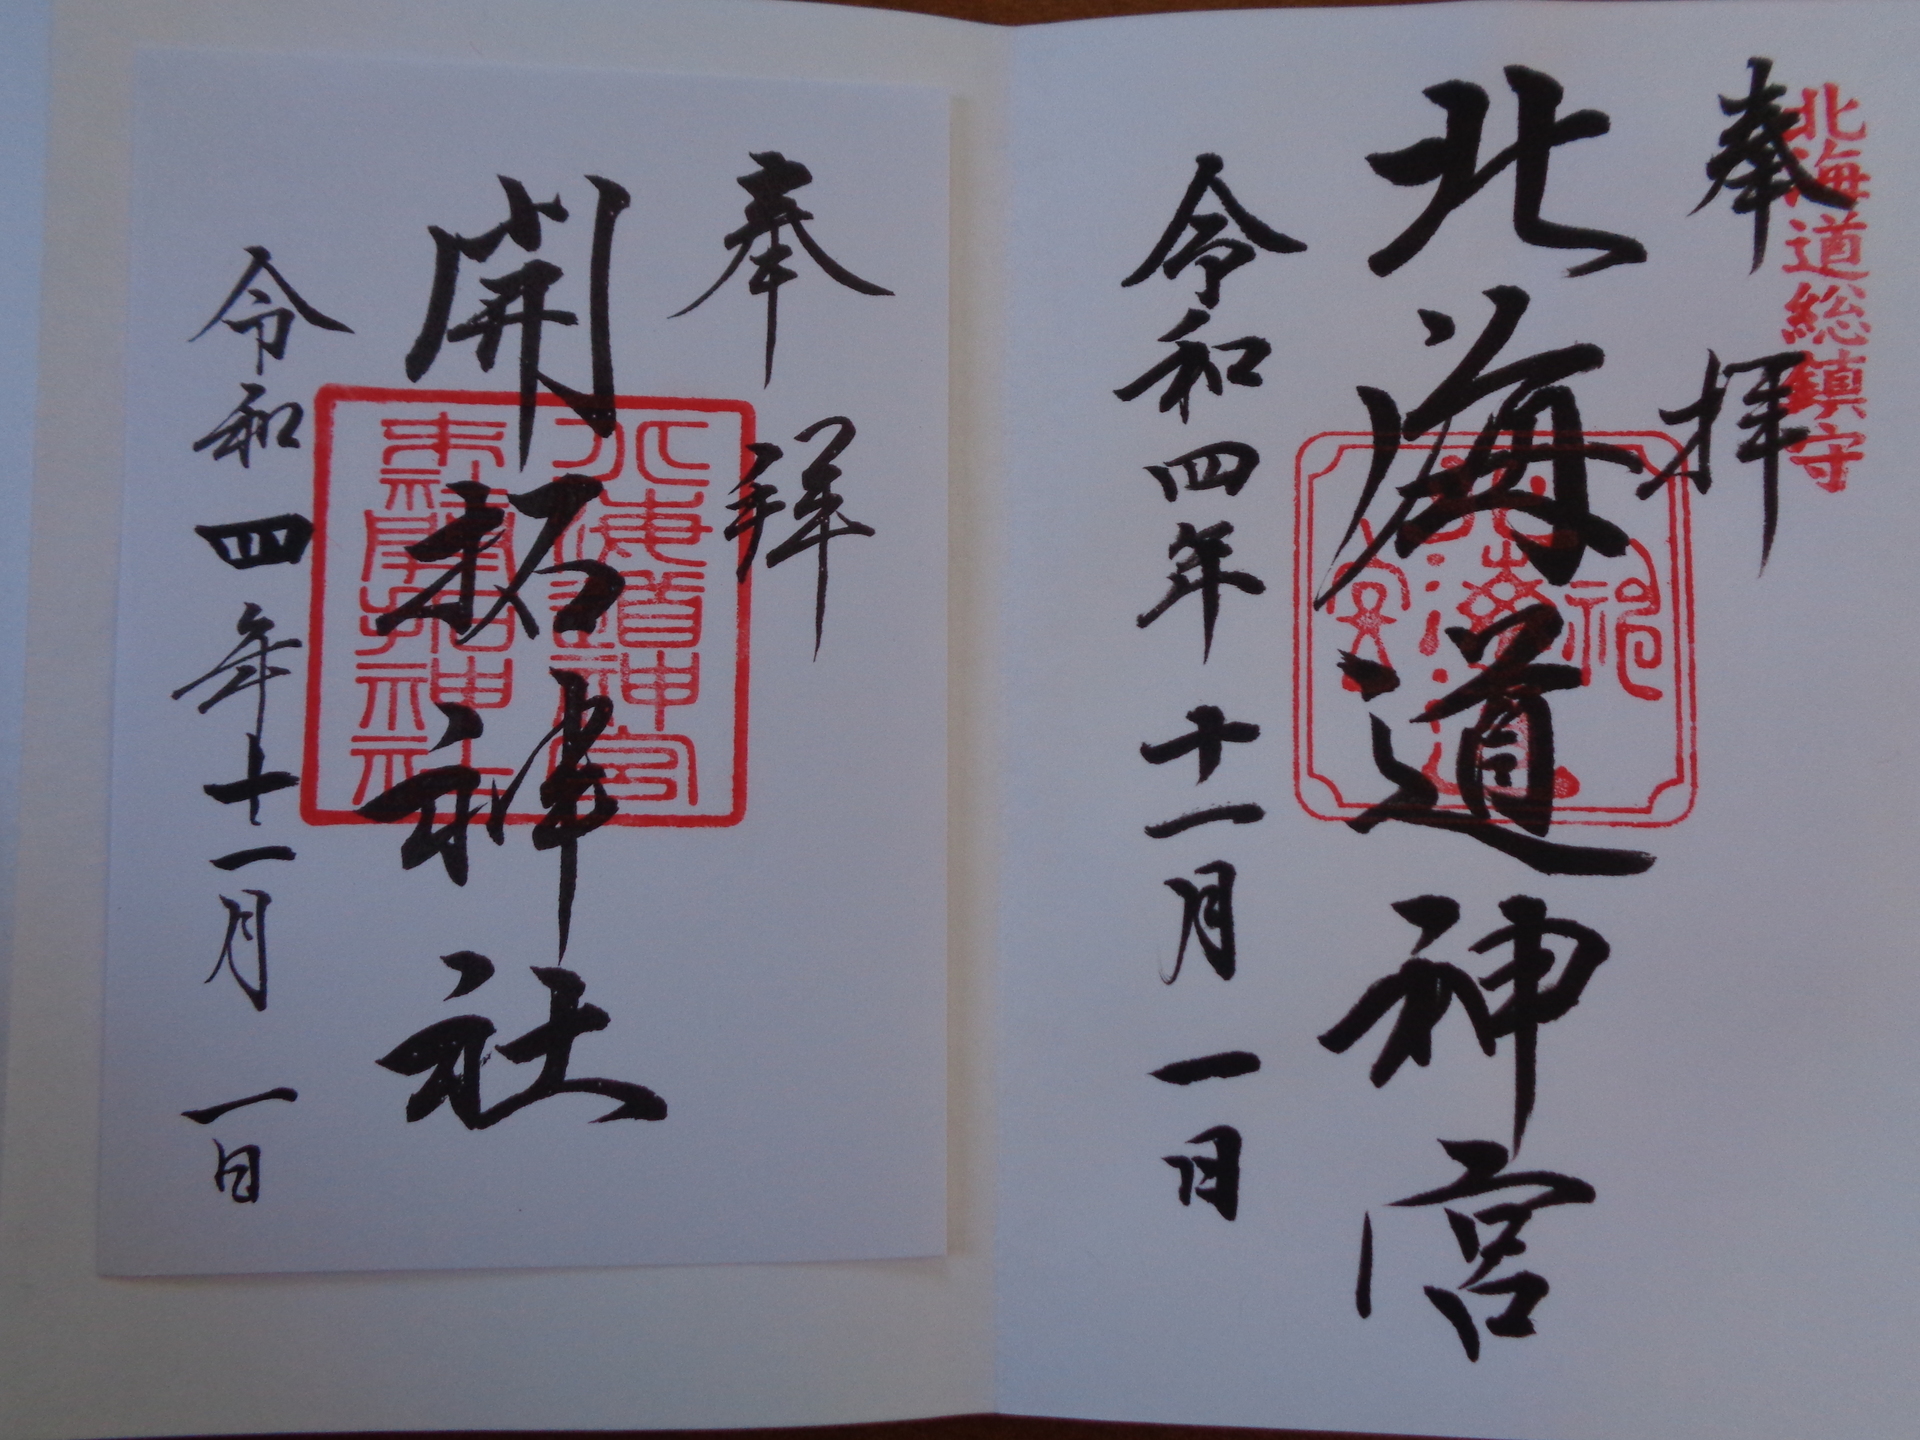 北海道総鎮守
奉拝
北海道神宮
令和四年十一月一日
奉拝
開拓神社
北海道神宮
末社開拓神社
令和四年十一月一日